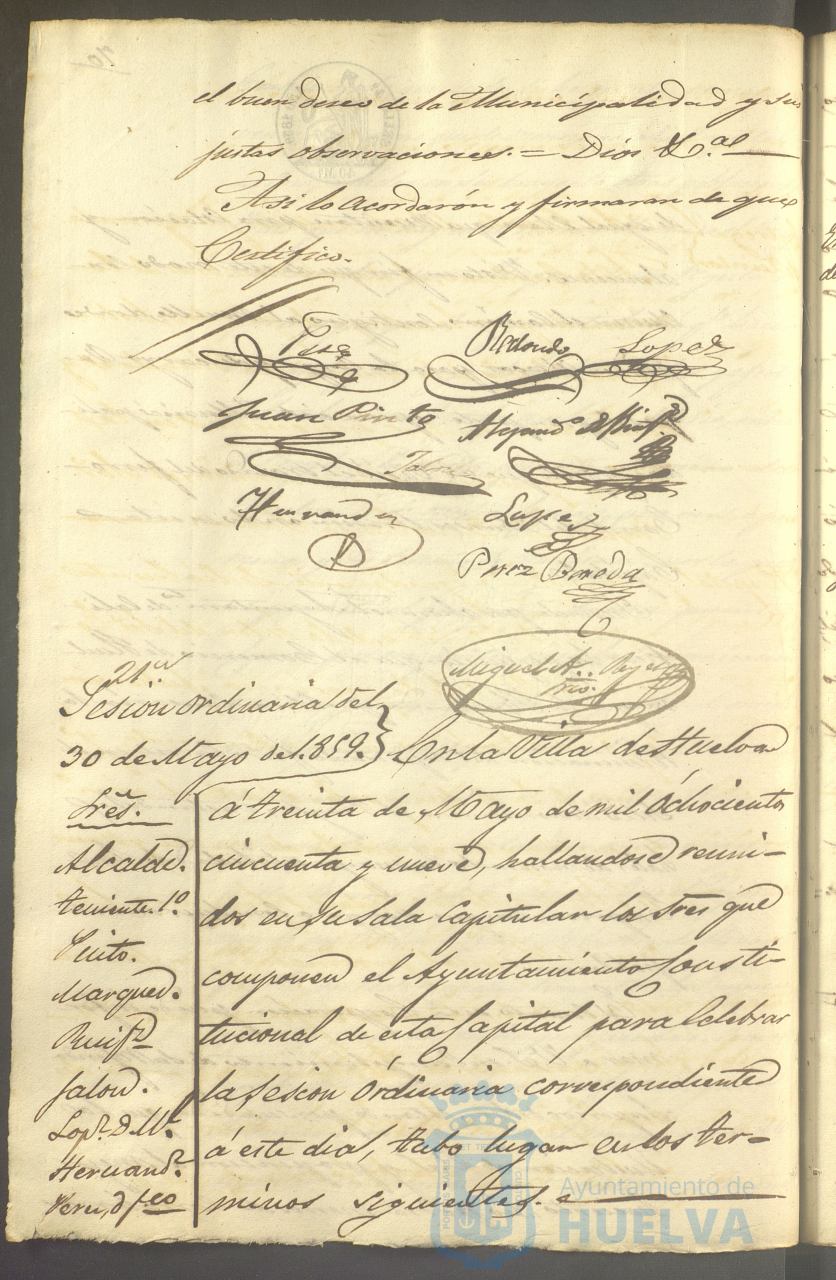 el buen deseo de la Municipalidad y sus
justas observaciones. = Dios &.al
Asi lo acordarón y firmaran de que
Certifico.
Redondo Lopez
Juan Pinto
Jalon
Hernandez Lopez
Perez
Miguel A..
Srio.
21.a
Sesion ordinaria del
30 de Mayo de 1.859.
En la Villa de Huelva
á treinta de Mayo de mil Ochocientos
cincuenta y nueve, hallandose reuni-
dos en su Sala Capitular los Sres que
componen el Ayuntamiento Consti-
tucional de esta Capital para Celebrar
la Sesion Ordinaria correspondiente
á este dia, tubo lugar en los ter-
minos siguientes. =
Sres.
Alcalde.
Teniente 1º.
Pinto.
Marquez.
Ruifz
Jalon.
Lopz. D. Ml.
Hernandz.
Ayuntamiento de
HUELVA